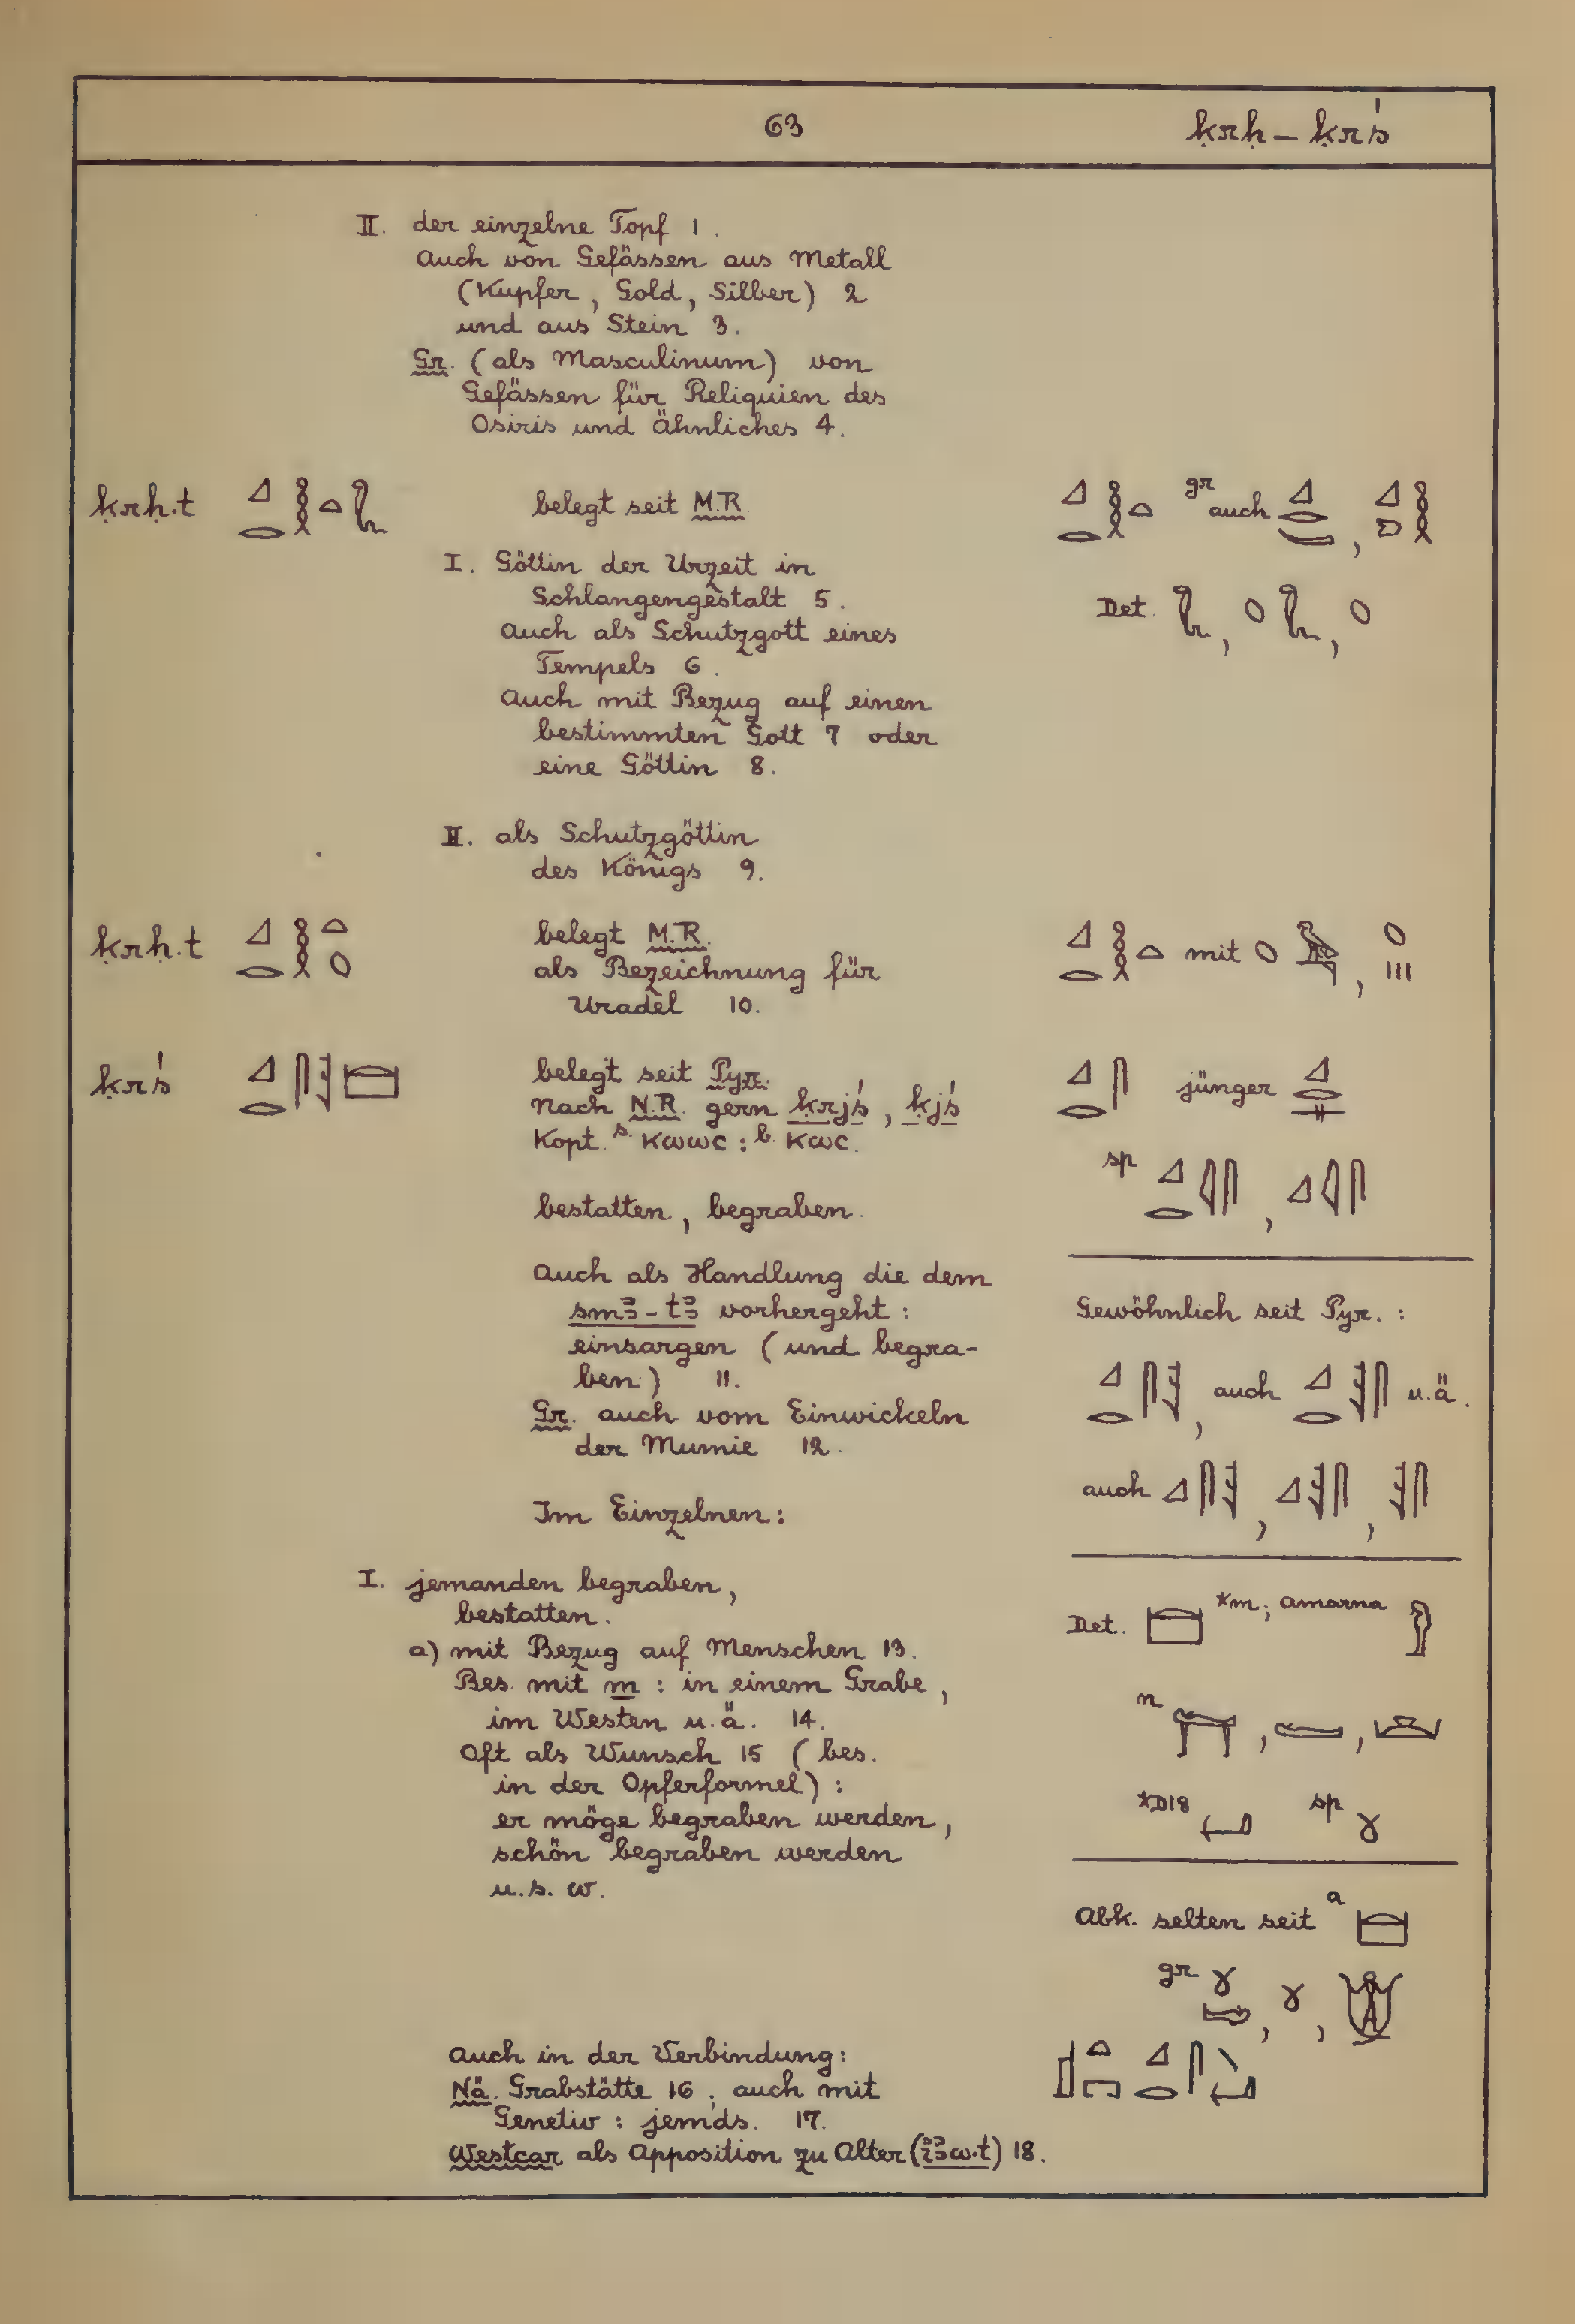 63
ḳrḥ – ḳrś
II. der einzelne Topf 1.
Auch von Gefässen aus Metall
(Kupfer, Gold, Silber) 2
und aus Stein 3.
Gr. (als Masculinum) von
Gefässen für Reliquien des
Osiris und Ähnliches 4.
ḳrḥ.t 𓈎𓂋𓎛𓏏𓆗 belegt seit M.R. 𓈎𓂋𓎛𓏏 gr auch
I. Göttin der Urzeit in
Schlangengestalt 5.
Det. 𓆗, 𓆇𓆗, 𓆇
Auch als Schutzgott eines
Tempels 6.
Auch mit Bezug auf einen
bestimmten Gott 7 oder
eine Göttin 8.
II. als Schutzgöttin
des Königs 9.
ḳrḥ.t 𓈎𓂋𓎛𓏏𓆇 belegt M.R. 𓈎𓂋𓎛𓏏 mit 𓆇
als Bezeichnung für
Uradel 10.
ḳrś 𓈎𓂋𓋴𓆱𓊭 belegt seit Pyr. 𓈎𓂋𓋴 jünger 𓈎𓂋𓊃
Nach N.R. gern ḳrjś, ḳjś
Kopt. s. ⲕⲱⲱⲥ : b. ⲕⲱⲥ.
sp 𓈎𓂋𓇋𓋴, 𓈎𓇋𓋴
bestatten, begraben.
Auch als Handlung die dem
smꜣ-tꜣ vorhergeht:
einsargen (und begra-
ben) 11.
Gr. auch vom Einwickeln
der Mumie 12.
Gewöhnlich seit Pyr.:
𓈎𓂋𓋴𓆱, auch 𓈎𓂋𓆱𓋴 u.ä.
auch 𓈎𓋴𓆱, 𓈎𓆱𓋴, 𓆱𓋴
Im Einzelnen:
I. jemanden begraben,
bestatten.
a) mit Bezug auf Menschen 13.
Bes. mit m : in einem Grabe,
im Westen u.ä. 14.
Oft als Wunsch 15 (bes.
in der Opferformel):
er möge begraben werden,
schön begraben werden
u.s.w.
Det. *m; Amarna
n
*D18 sp
Abk. selten seit a
gr
Auch in der Verbindung:
Nä. Grabstätte 16; auch mit
Genetiv: jemds. 17.
Westcar als Apposition zu Alter (ỉꜣw.t) 18.